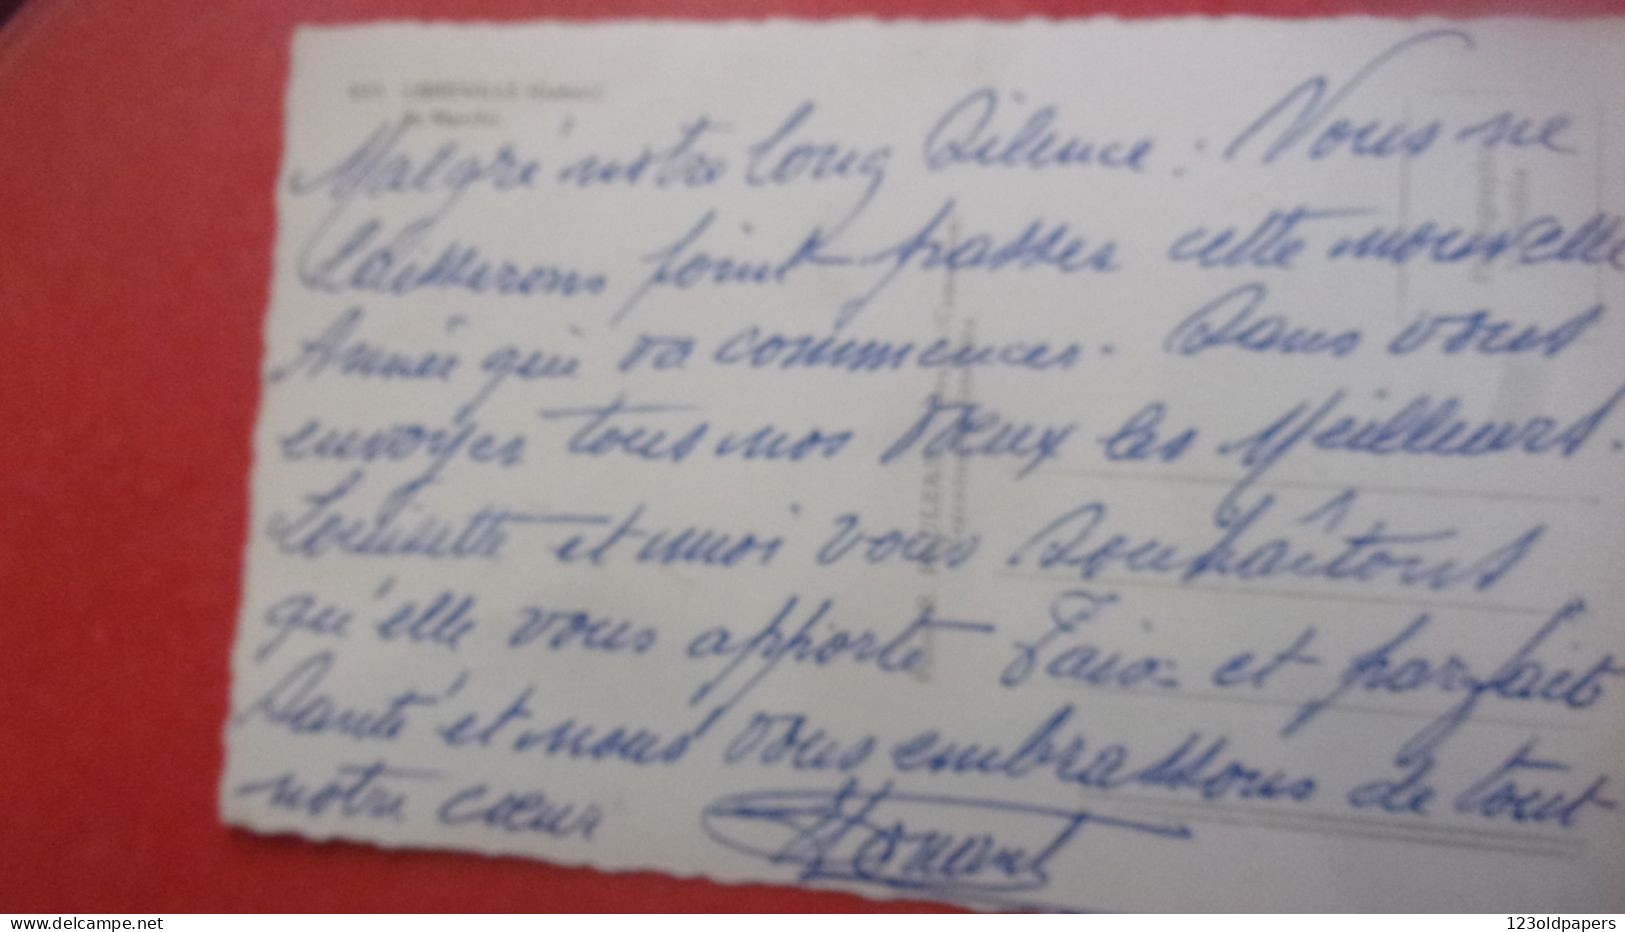 LIBREVILLE (Gabon)
Malgré notre long Silence. Vous ne
laisserons point passer cette nouvelle
Année qui va commencer. Sans vous
envoyer tous nos Vœux les Meilleurs.
Louisette et moi vous Souhaîtons
qu'elle vous apporte Paix et parfait
Santé et nous vous embrassons de tout
notre cœur
delcampe.net
123oldpapers